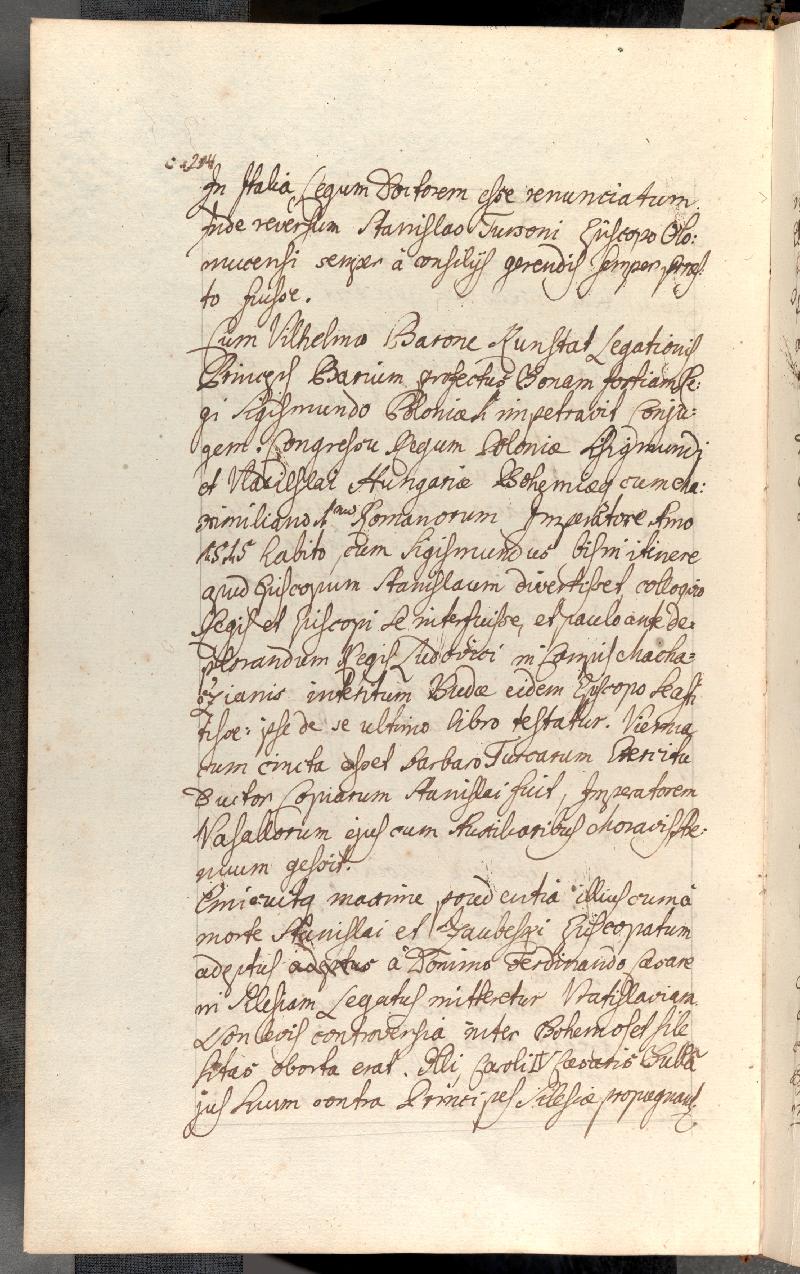 In Italia Legum Doctorem esse renunciatum.
Inde reversum Stanislao Tursoni Episcopo Olo:
mucensi semper à consilijs gerendis semper præs:
to fuisse.
Cum Vilhelmo Barone Kunstat Legationis
Princeps Barium profectus Bonam sfortiam Re:
gi Sigismundo Poloniæ impetravit conju:
gem. Congressu Regum Poloniæ Sigismundi
et Vladislai Hungariæ Bohemiæq cum Ma:
ximiliano Romanorum Imperatore Anno
1515 habito, cum Sigismundus bis in itinere
apud Episcopum Stanislaum divertisset, colloquio
Regis et Episcopi se interfuisse, et paulo ante de:
plorandum Regis Ludovici in Campis Macha:
zianis interitum Budæ eidem Episcopo se asti
tisse: ipse de se ultimo libro testatur. Vienna
cum cincta esset barbaro Turcarum Exercitu
Ductor Copiarum Stanislai fuit, Imperatorem
Vasallorum ejus cum Auxiliaribus Moravis stre:
nuum gessit.
Emicuitq maxime prudentia illius cum à
morte Stanislai et Zaubeski Episcopatum
adeptus adeptus à Domino Ferdinando Cæsare
in Silesiam Legatus mitteretur Vratislaviam.
Non levis controversia inter Bohemos et Sile
sitas oborta erat. Illi, Caroli IV Cæsaris Bulla
jus suum contra Principes Silesiæ propugnant: